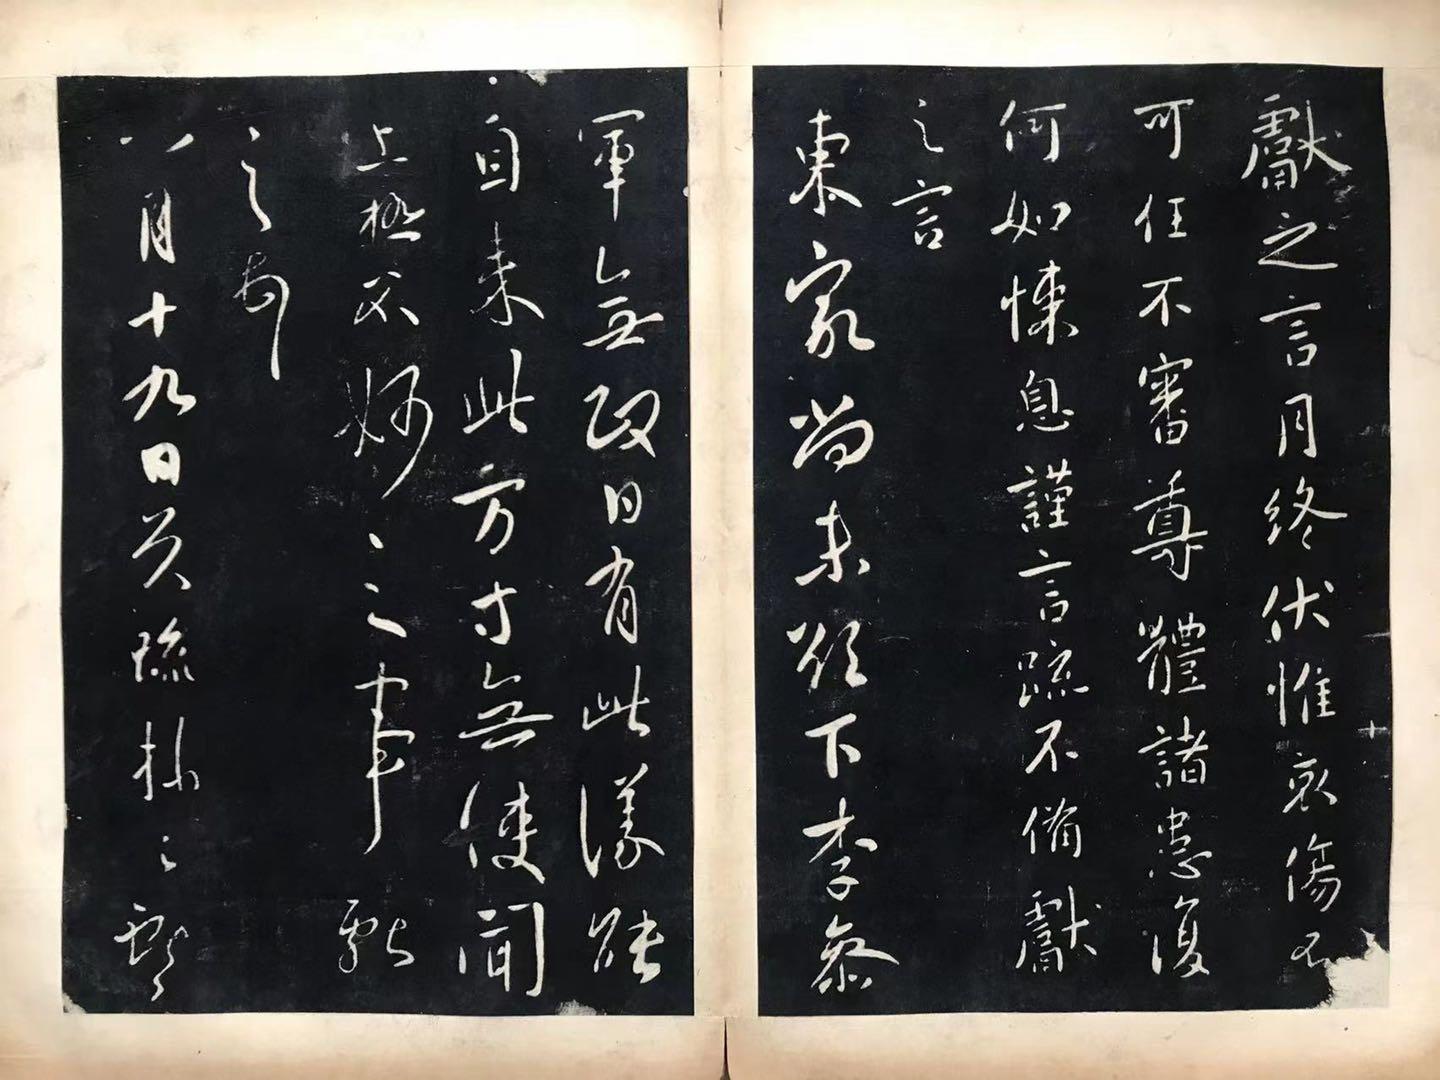 獻之言月終伏惟哀傷不
可任不審尊體諸患復
何如悚息謹言疏不備獻
之言
東家尚未欲下李參
軍無政日有此議能
自來此方寸無使聞
上極不妙之事獻
之
八月十九日 疏 之